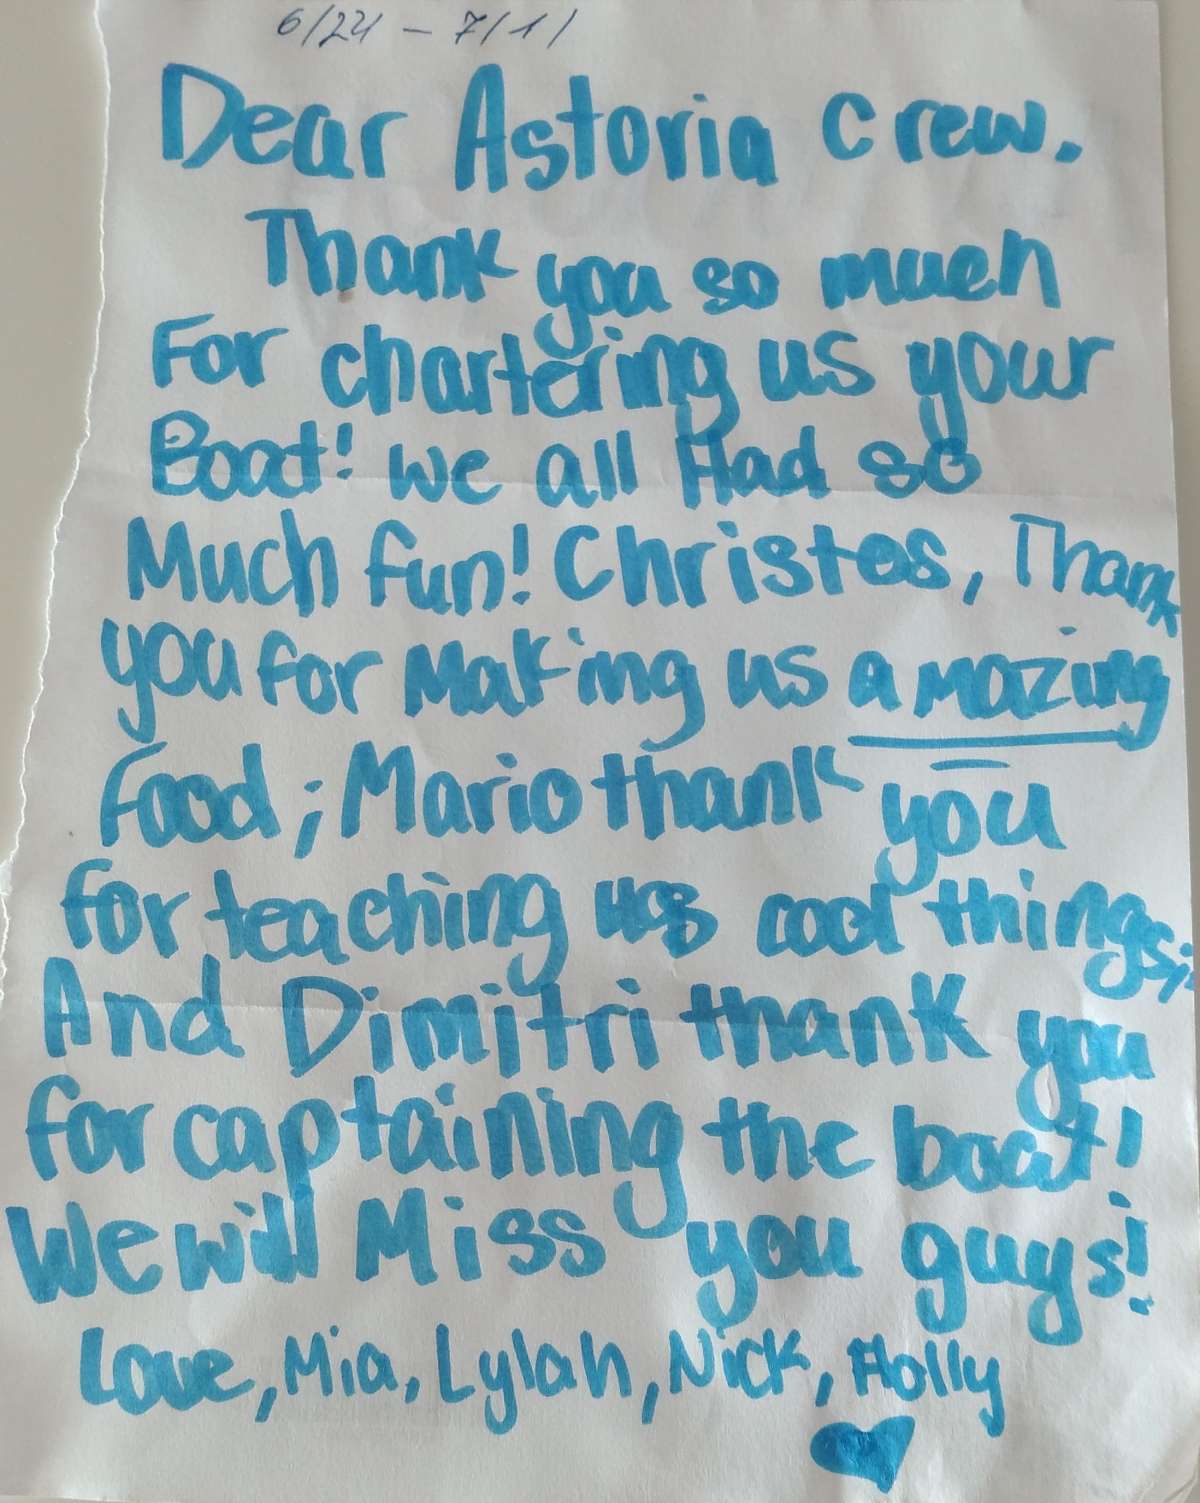 6/24 - 7/1/
Dear Astoria crew.
Thank you so much
For chartering us your
Boat! we all Had so
Much fun! Christos, Thank
you for Making us amazing
Food; Mario thank you
for teaching us cool things;
And Dimitri thank you
for captaining the boat!
We will Miss you guys!
Love, Mia, Lylah, Nick, Holly